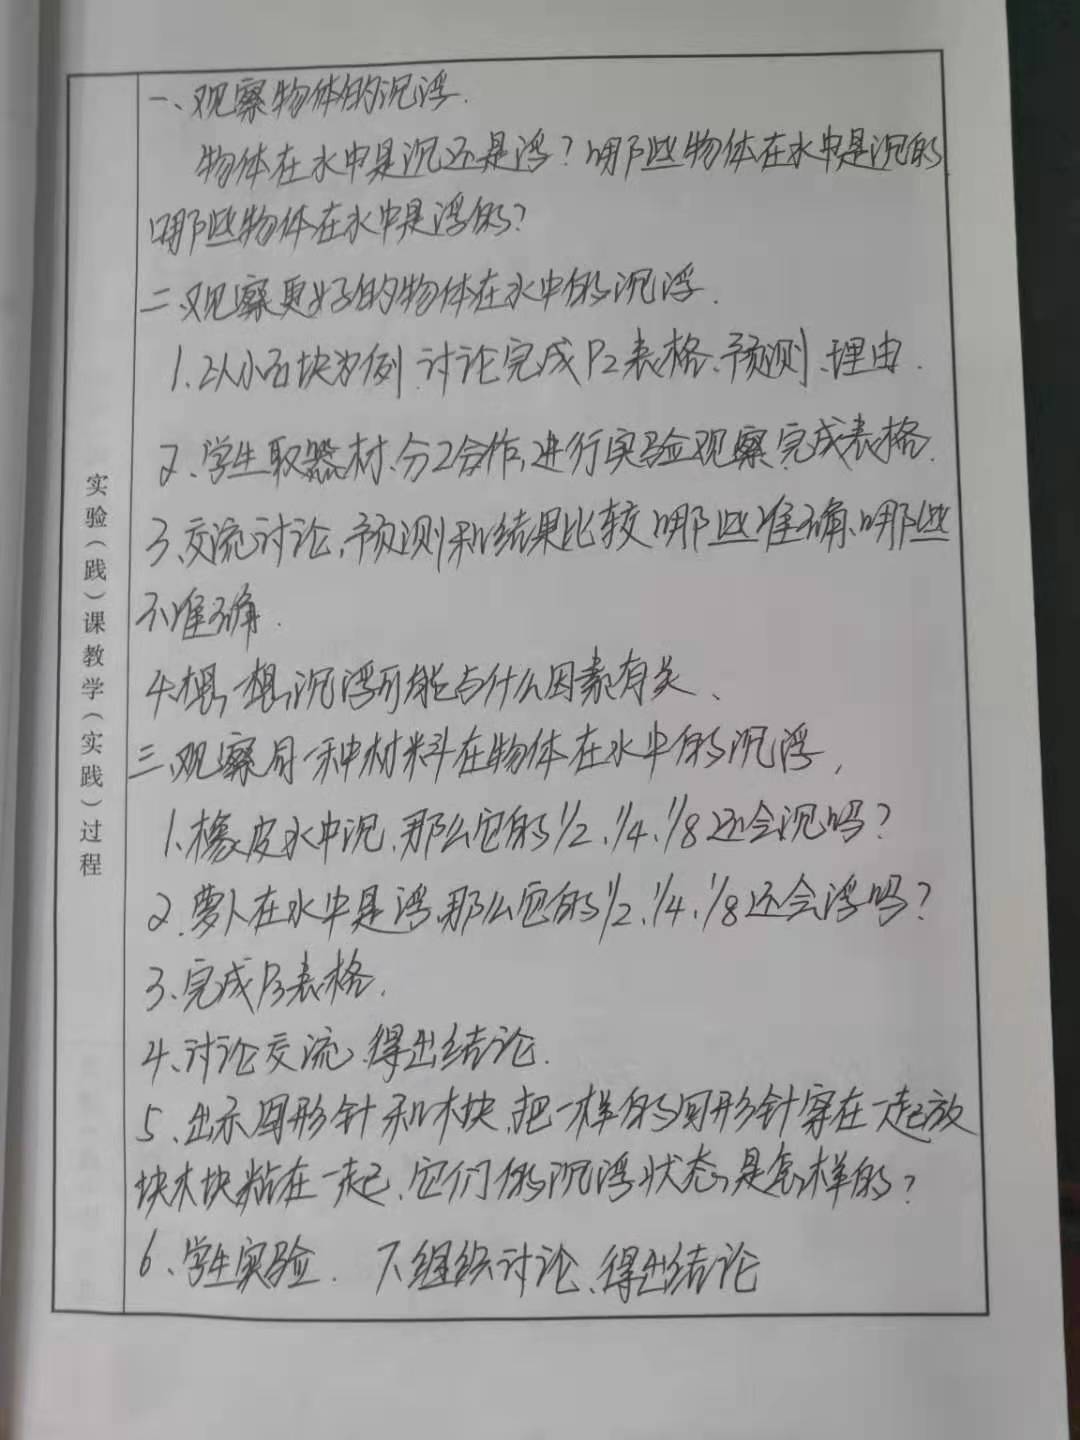 实验(践)课教学(实践)过程
一、观察物体的沉浮.
物体在水中是沉还是浮?哪些物体在水中是沉的
哪些物体在水中是浮的?
二、观察更好的物体在水中的沉浮.
1.以小石块为例.讨论完成P2表格、预测、理由.
2.学生取器材、分工合作,进行实验观察完成表格.
3、交流讨论,预测和结果比较哪些准确、哪些
不准确.
4.想一想,沉浮可能与什么因素有关、
三、观察同一种材料在物体在水中的沉浮,
1.橡皮水中沉、那么它的1/2、1/4、1/8还会沉吗?
2.萝卜在水中是浮、那么它的1/2、1/4、1/8还会浮吗?
3、完成P3表格.
4、讨论交流、得出结论.
5、出示回形针和木块、把一样的回形针穿在一起放
块木块粘在一起、它们的沉浮状态是怎样的?
6、学生实验. 7、继续讨论、得出结论